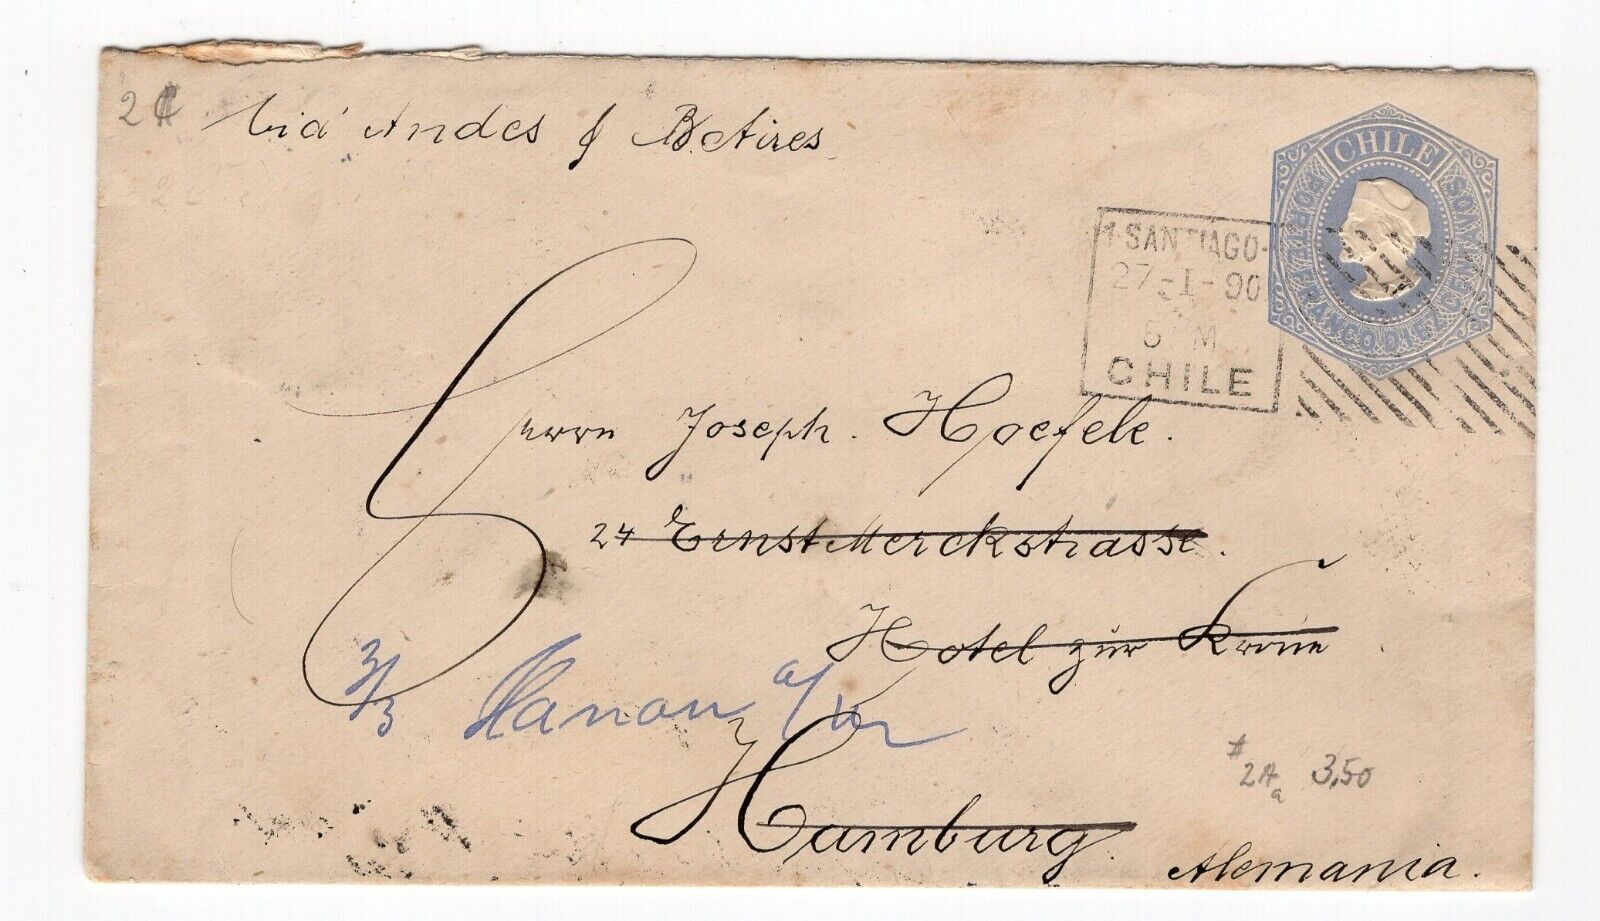 2₡
Viá Andes & B Aires
CHILE
PORTE FRANCO DIEZ CENTAVOS
1·SANTIAGO·
27-I-90
CHILE
Herrn Joseph. Hoefele.
24 Ernst Merckstrasse.
Hotel zur Krone
3/3 Hanau a/M
Hamburg.
# 2A a 3,50
Alemania.